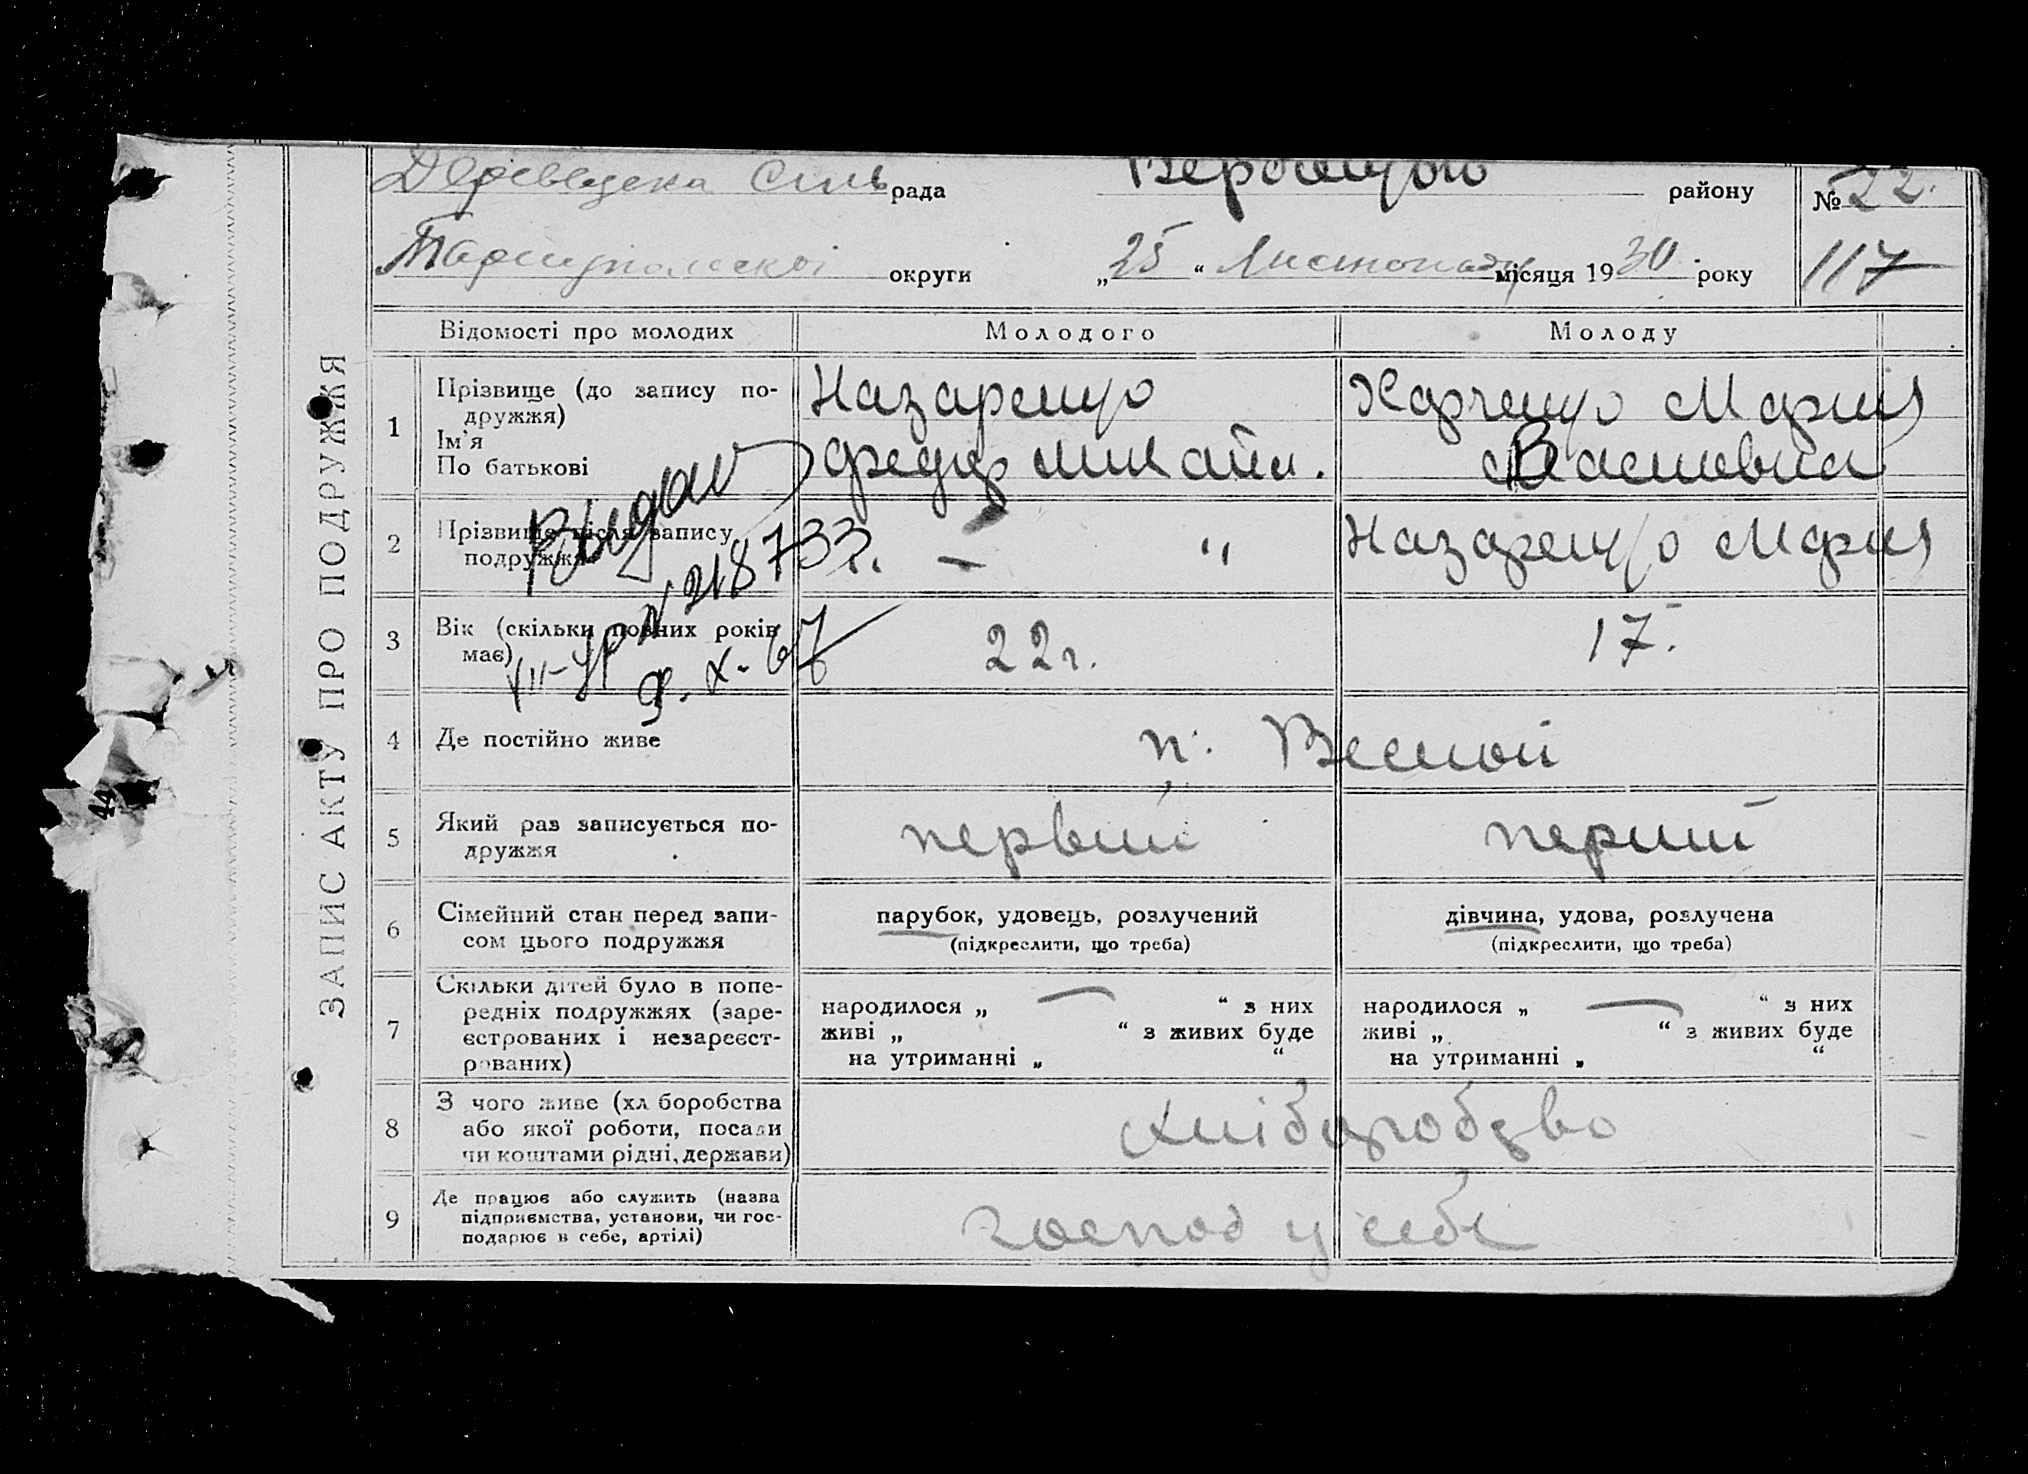 ЗАПИС АКТУ ПРО ПОДРУЖЖЯ
рада района району № 22.
округи „25“ Листопаду місяця 1930 року 117
Відомості про молодих Молодого Молоду
1 Прізвище (до запису по-
дружжя)
Ім'я
По батькові
Назаренко
федир михайл.
Харченко Мария
Василевна
2 Прізвище після запису
подружжя
— "
Назаренко Мария
Выдан
VII-ЯР № 218733
9.X.67
3 Вік (скільки повних років
має)
22 г.
17.
4 Де постійно живе
п. Веселой
5 Який раз записується по-
дружжя
первий
перший
6 Сімейний стан перед запи-
сом цього подружжя
парубок, удовець, розлучений
(підкреслити, що треба)
дівчина, удова, розлучена
(підкреслити, що треба)
7 Скільки дітей було в попе-
редніх подружжях (заре-
єстрованих і незареєст-
рованих)
народилося „ — “ з них
живі „ “ з живих буде
на утриманні „ “
народилося „ — “ з них
живі „ “ з живих буде
на утриманні „ “
8 З чого живе (хл боробства
або якої роботи, посади
чи коштами рідні, держави)
хліборобдво
9 Де працює або служить (назва
підприємства, установи, чи гос-
подарює в себе, артілі)
господ у себе